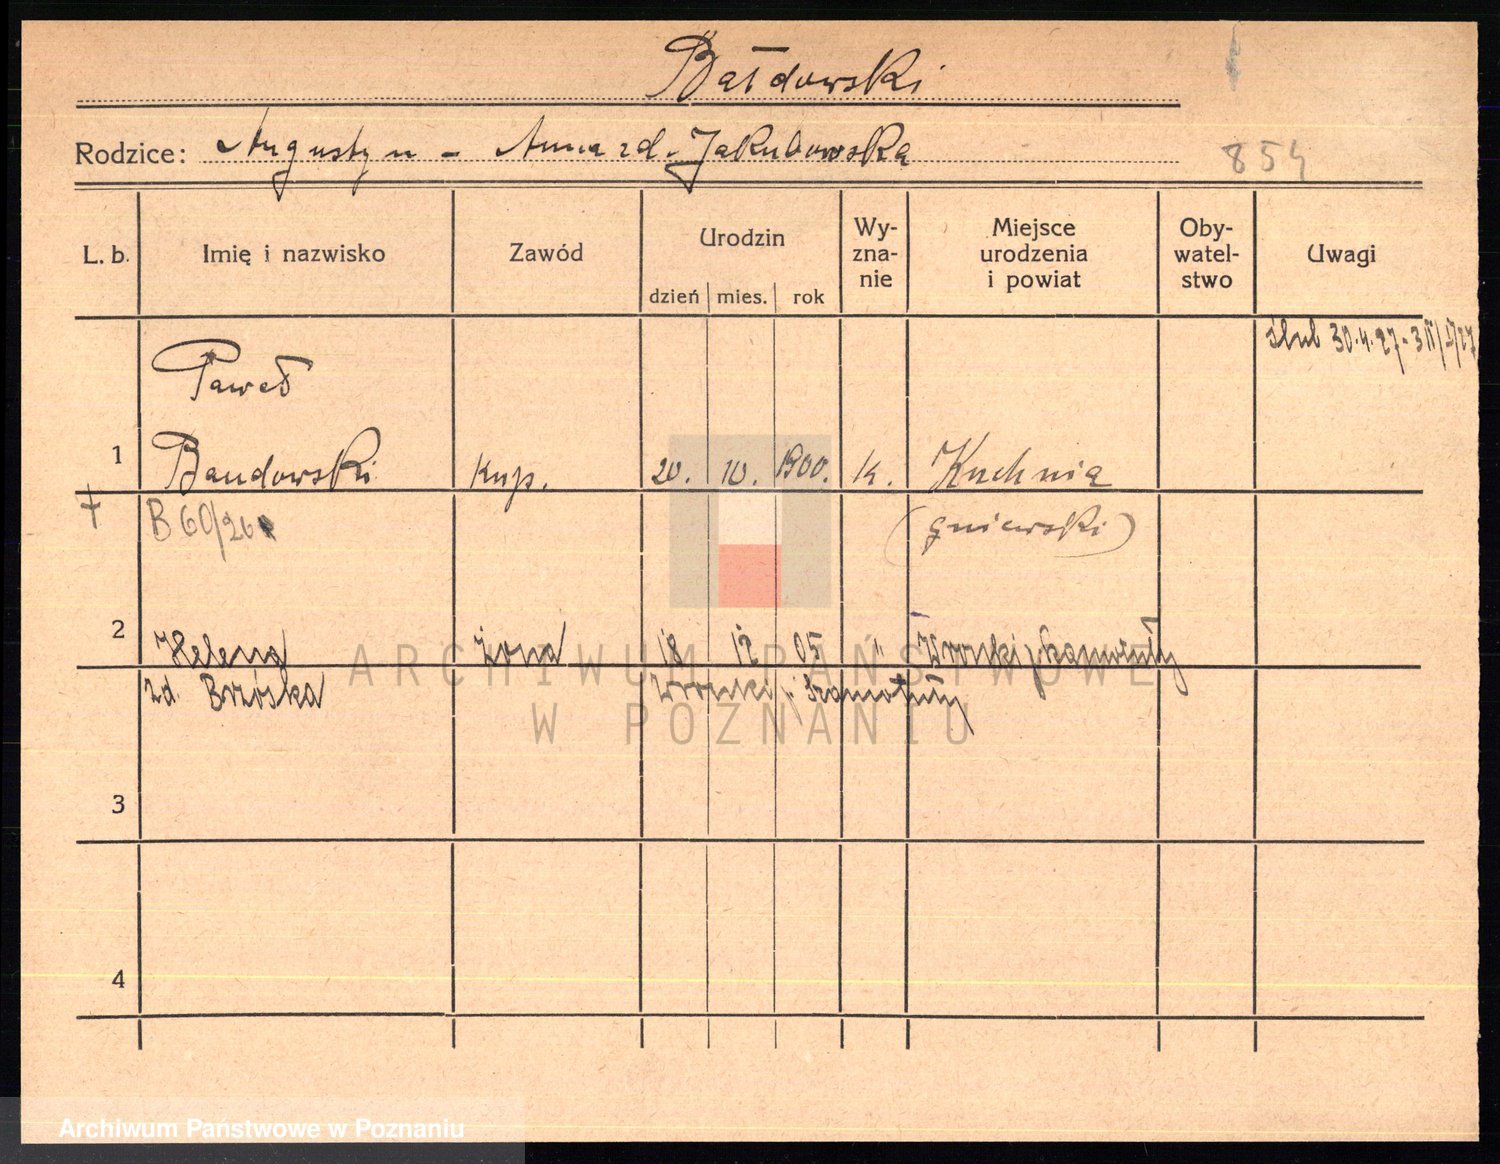 Bałdowski
Rodzice: Augustyn - Anna zd. Jakubowska
854
L. b. Imię i nazwisko Zawód Urodzin dzień mies. rok Wyznanie Miejsce urodzenia i powiat Obywatelstwo Uwagi
ślub 30.4.27
Paweł
1 Bandowski Kup. 20. 10. 1900. k. Kuchnia
B 60/26 (gniewski)
2 Helena żona 18 12 05 " Wronki p. Szamotuły
zd. Brzóska Wronki p. Szamotuły
3
4
ARCHIWUM PAŃSTWOWE
W POZNANIU
Archiwum Państwowe w Poznaniu